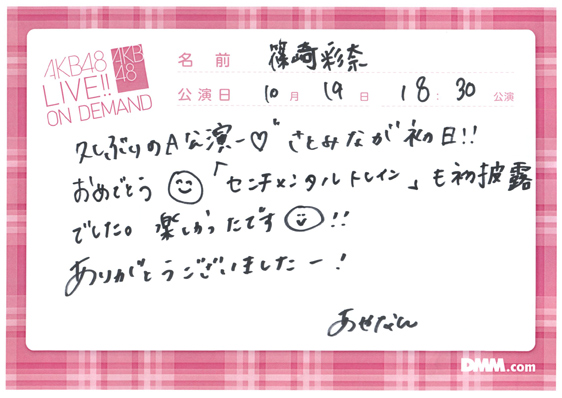 AKB48
LIVE!!
ON DEMAND
AKB
48
名前 篠崎彩奈
公演日 10月 19日 18:30 公演
久しぶりのA公演ー♡ さとみなが初日!!
おめでとう 「センチメンタルトレイン」も初披露
でした。楽しかったです !!
ありがとうございましたー!
あやなん
DMM.com